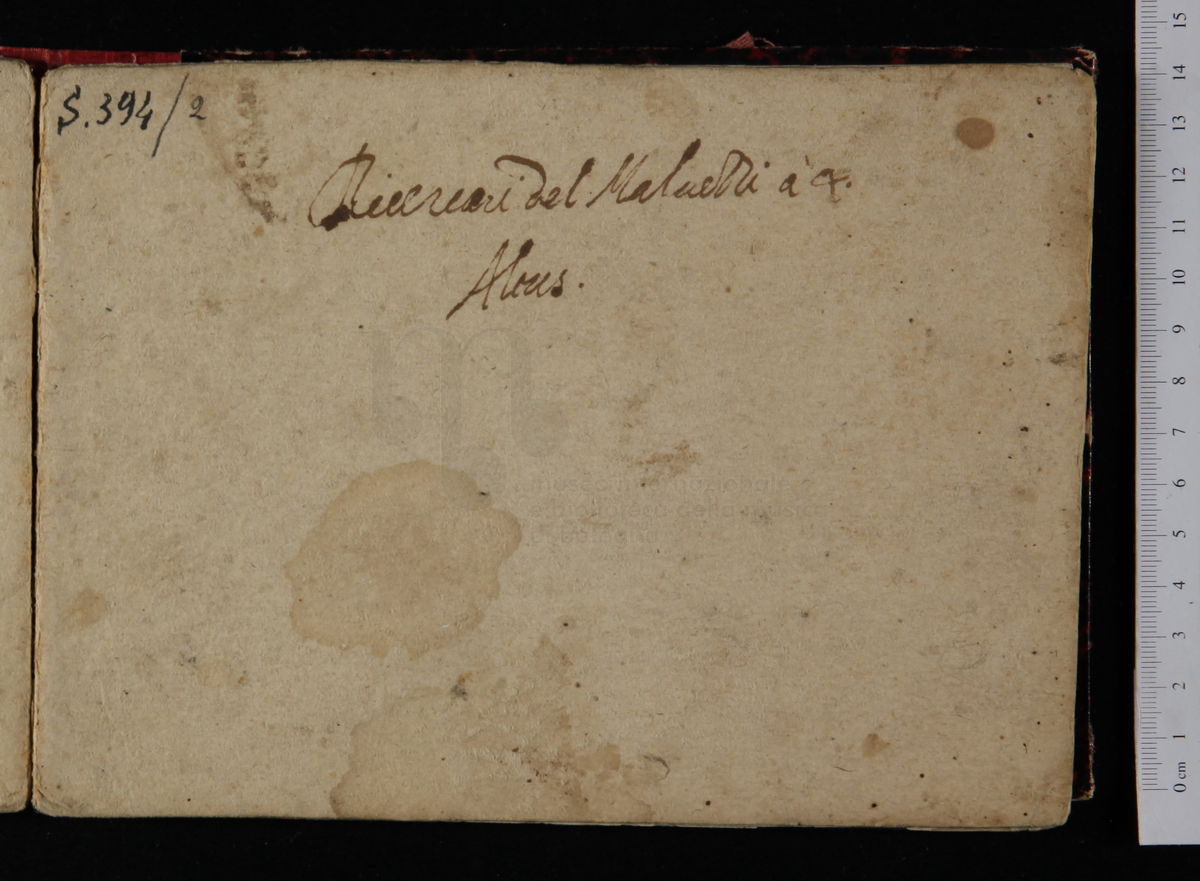 S. 394/2
Riecreari del Maluezzi à 4.
Altus.
museo internazionale
e biblioteca della musica
di bologna
0 cm 1 2 3 4 5 6 7 8 9 10 11 12 13 14 15